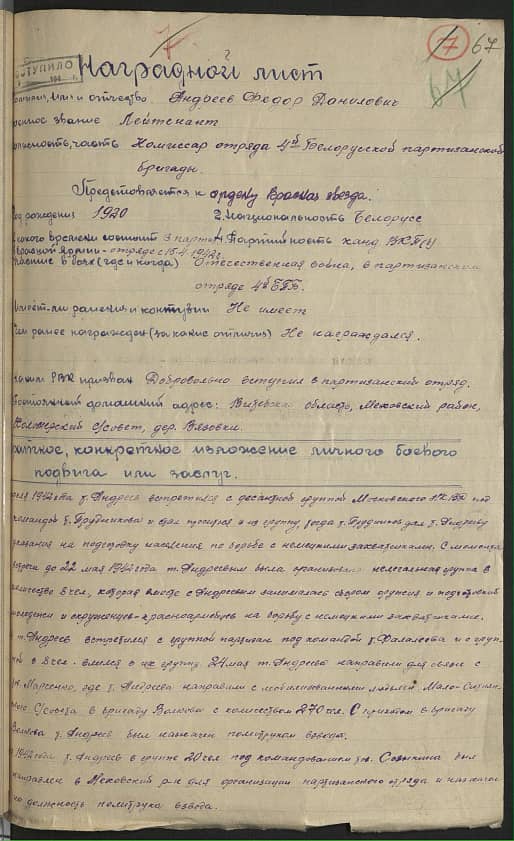 7
7 67
64
ПОСТУПИЛО
Наградной лист
Имя и отчество Андреев Федор Данилович
звание Лейтенант
часть Комиссар отряда 4й Белорусской партизанской
бригады.
Представляется к ордену Красная звезда.
Год рождения 1920 2. Национальность Белорусс
какого времени состоит в парт. 4. Партийность канд. ВКП/б/
Красной Армии - отряде с 15.4.1942 г.
в боях (где и когда) Отечественная война, в партизанском
отряде 4й БПБ.
Имеет-ли ранения и контузии Не имеет
Чем ранее награжден (за какие отличия) Не награждался.
Каким РВК призван Добровольно вступил в партизанский отряд.
Постоянный домашний адрес: Витебская область, Меховский район,
С/совет, дер. Вязовки.
Краткое, конкретное изложение личного боевого
подвига или заслуг.
1942 года т. Андреев встретился с десантной группой Московского под
командой т. Прудникова и в группу, тогда т. Прудников дал т. Андрееву
указания на подготовку населения по борьбе с немецкими захватчиками. С момента
до 22 мая 1942 года т. Андреевым была организована нелегальная группа в
количестве 8 чел, которая вместе с Андреевым занималась сбором оружия и подготовкой
молодежи и окруженцев-красноармейцев на борьбу с немецкими захватчиками.
т. Андреев встретился с группой партизан под командой т. Фалалеева и с груп-
пой в 8 чел - влился в их группу. 24 мая т. Андреева направили для связи с
тов. Марченко, где т. Андреева направили с мобилизованными людьми Мало-
С/совета в бригаду Волкова с количеством 270 чел. С приходом в бригаду
Волкова т. Андреев был назначен политруком взвода.
1942 года т. Андреев в группе 20 чел под командованием тов. был
направлен в Меховский р-н для организации партизанского отряда и назначен
на должность политрука взвода.